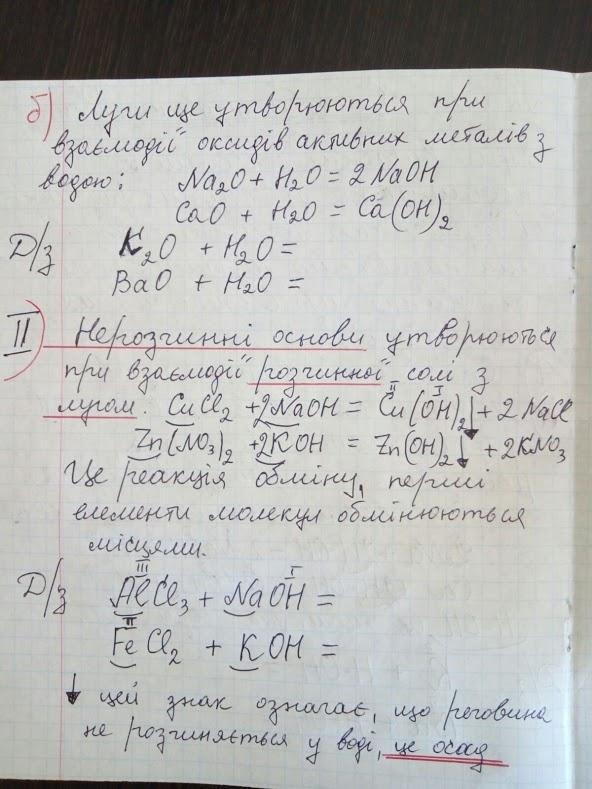 б) Луги ще утворюються при
взаємодії оксидів активних металів з
водою: Na₂O + H₂O = 2 NaOH
CaO + H₂O = Ca(OH)₂
Д/з K₂O + H₂O =
BaO + H₂O =
II) Нерозчинні основи утворюються
при взаємодії розчинної солі з
лугом. CuCl₂ + 2NaOH = Cu(OH)₂↓ + 2 NaCl
Zn(NO₃)₂ + 2KOH = Zn(OH)₂↓ + 2KNO₃
Це реакція обміну, перші
елементи молекул обмінюються
місцями.
Д/з AlCl₃ + NaOH =
FeCl₂ + KOH =
↓ цей знак означає, що речовина
не розчиняється у воді, це осад